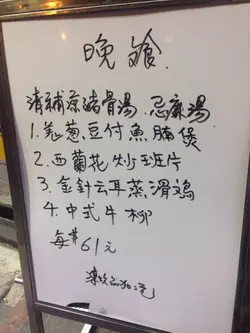 晚飧
清補涼豬骨湯.忌廉湯
1.羗葱豆付魚腩煲
2.西蘭花炒班片
3.金針云耳蒸滑鷄
4.中式牛柳
每業61元
凍飲品加2元